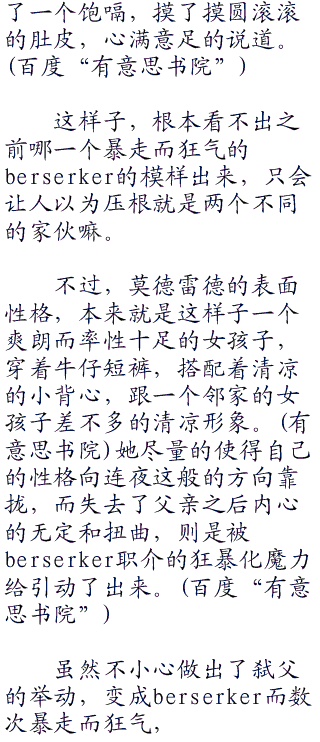 了一个饱嗝，摸了摸圆滚滚
的肚皮，心满意足的说道。
(百度“有意思书院”)
这样子，根本看不出之
前哪一个暴走而狂气的
berserker的模样出来，只会
让人以为压根就是两个不同
的家伙嘛。
不过，莫德雷德的表面
性格，本来就是这样子一个
爽朗而率性十足的女孩子，
穿着牛仔短裤，搭配着清凉
的小背心，跟一个邻家的女
孩子差不多的清凉形象。(有
意思书院)她尽量的使得自己
的性格向连夜这般的方向靠
拢，而失去了父亲之后内心
的无定和扭曲，则是被
berserker职介的狂暴化魔力
给引动了出来。(百度“有意
思书院”)
虽然不小心做出了弑父
的举动，变成berserker而数
次暴走而狂气，